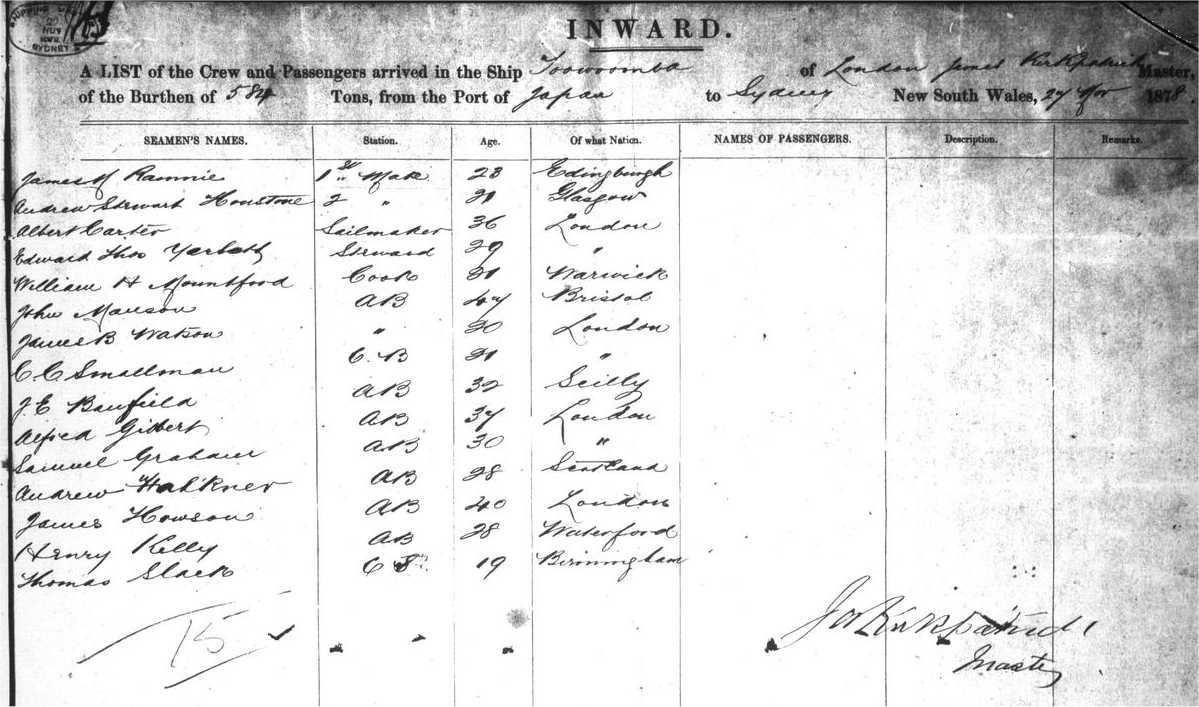 SYDNEY
INWARD.
A LIST of the Crew and Passengers arrived in the Ship Toowoomba of London James Kirkpatrick Master,
of the Burthen of 584 Tons, from the Port of Japan to Sydney New South Wales, 27 Nov 1878
SEAMEN'S NAMES. Station. Age. Of what Nation. NAMES OF PASSENGERS. Description. Remarks.
James Rannie 1st Mate 28 Edingburgh
Andrew Stewart Houstone 2 " 21 Glasgow
Albert Carter Sailmaker 36 London
Edward Thos Steward 29 "
William H Mountford Cook 21 Warwick
John Manson AB 47 Bristol
James B Watson " 20 London
C C Smallman 21 "
J E Banfield AB 32 Scilly
Alfred Gilbert AB 37 London
Samuel Graham AB 30 "
Andrew AB 28 Scotland
James Howson AB 40 London
Henry Kelly AB 28 Waterford
Thomas Slack 19 Birmingham
15
Kirkpatrick
Master